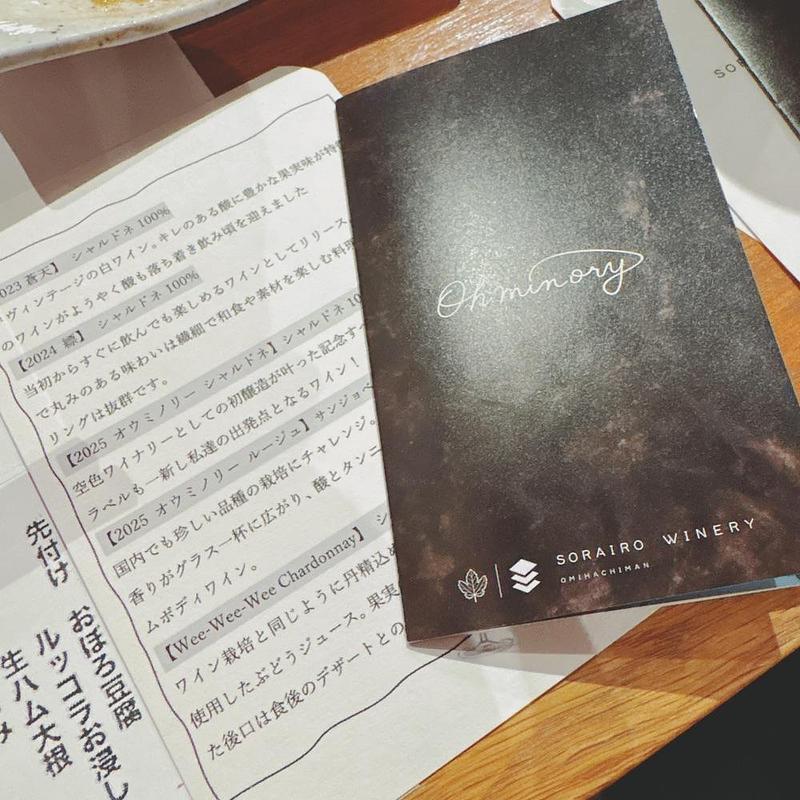 023 蒼天】 シャルドネ 100%
ヴィンテージの白ワイン。キレのある酸に豊かな果実味が特
のワインがようやく酸も落ち着き飲み頃を迎えました
【2024 縹】 シャルドネ 100%
当初からすぐに飲んでも楽しめるワインとしてリリース
で丸みのある味わいは繊細で和食や素材を楽しむ料理
リングは抜群です。
【2025 オウミノリー シャルドネ】シャルドネ 10
空色ワイナリーとしての初醸造が叶った記念す
ラベルも一新し私達の出発点となるワイン！
【2025 オウミノリー ルージュ】サンジョベ
国内でも珍しい品種の栽培にチャレンジ。
香りがグラス一杯に広がり、酸とタンニ
ムボディワイン。
【Wee-Wee-Wee Chardonnay】 シ
ワイン栽培と同じように丹精込め
使用したぶどうジュース。果実
た後口は食後のデザートとの
先付け
おぼろ豆腐
ルッコラお浸し
生ハム大根
Ohminory
SORAIRO WINERY
OMIHACHIMAN
SOR